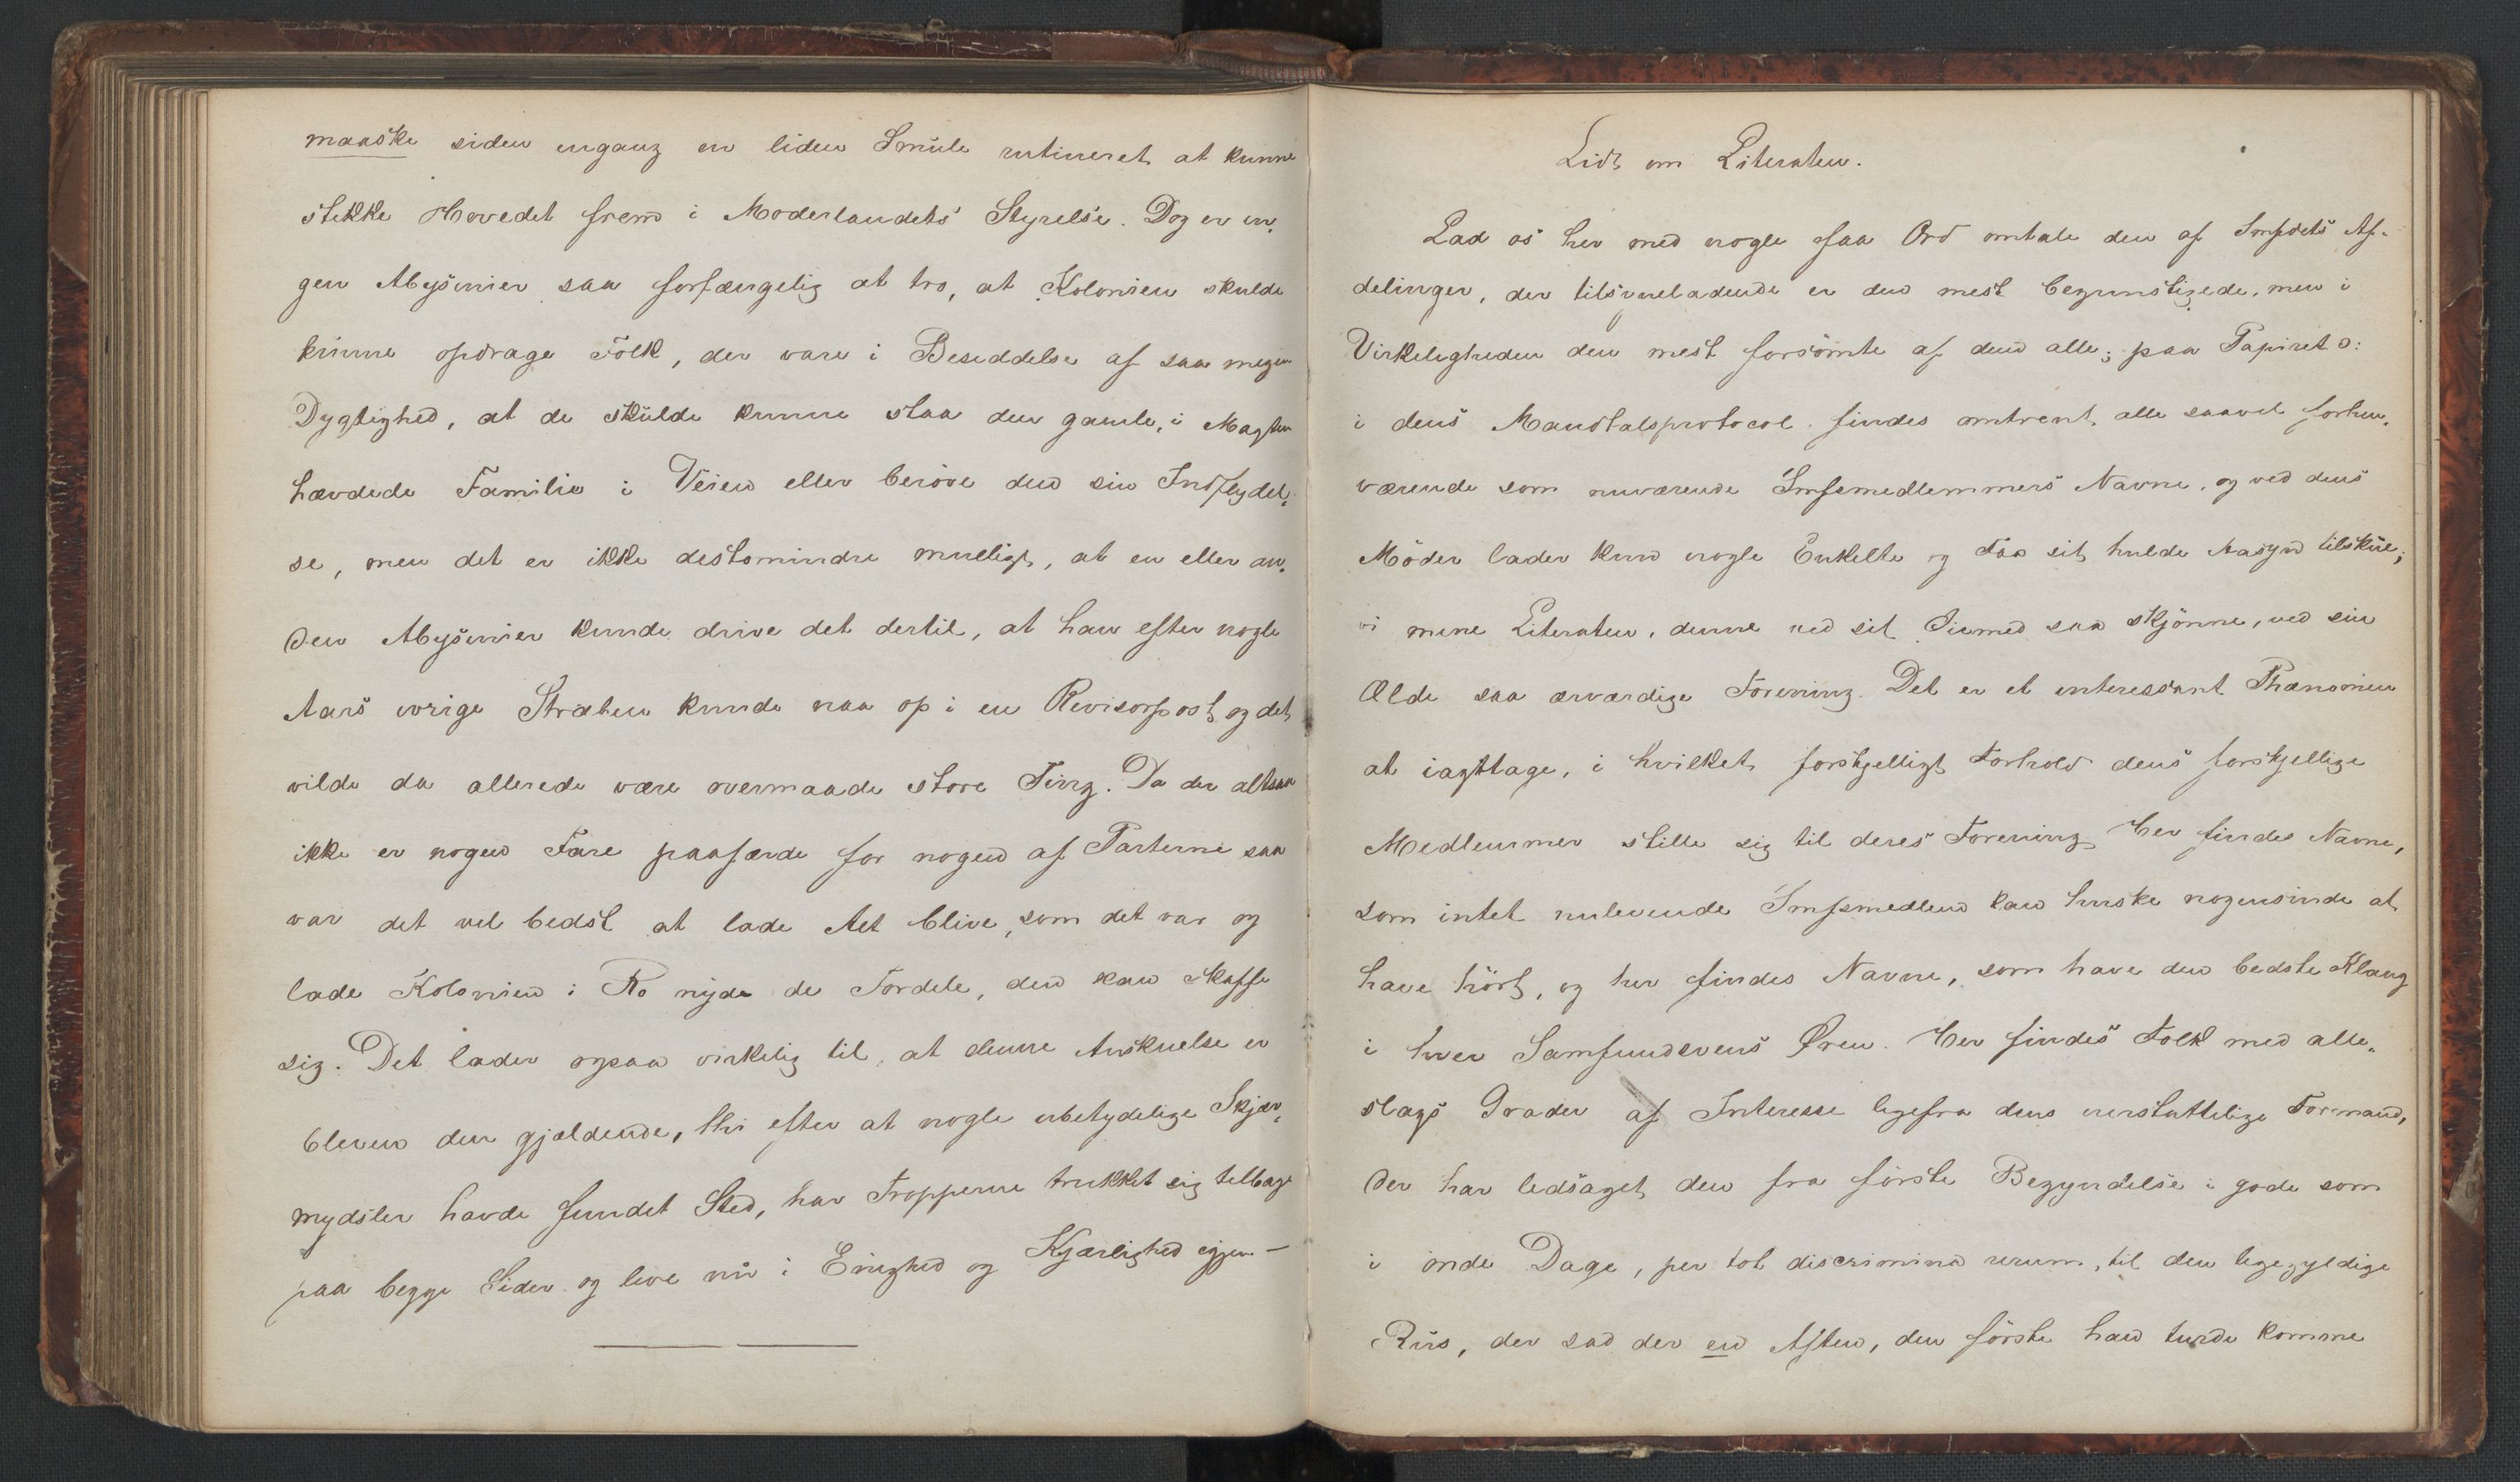 maaske siden engang en liden Smule rutineret at kunne
stekke Hovedet frem i Moderlandets Styrelse. Dog er in-
gen Abysinier saa forfængelig at tro, at Kolonien skulde
kunne opdrage Folk, der vare i Besiddelse af saa megen
Dygtighed, at de skulde kunne staa den gamle, i Magten
hævdede Familie i Veien eller berøve den sin Indflydel-
se, men det er ikke destomindre mueligt, at en eller an-
den Abysinier kunde drive det dertil, at han efter nogle
Aars ivrige Stræben kunde naa op i en Revisorpost, og det
vilde da allerede være overmaade store Ting. Da der altsaa
ikke er nogen Fare paafærde for nogen af Parterne saa
var det vel bedst at lade det blive, som det var og
lade Kolonien i Ro nyde de Fordele, den kan skaffe
sig. Det lader ogsaa virkelig til, at denne Anskuelse er
bleven den gjældende, thi efter at nogle ubetydelige Skjær-
mydsler havde fundet Sted, har Tropperne trukket sig tilbage
paa begge Sider og leve nu i Enighed og Kjærlighed igjen —
Lidt om Literaten.
Lad os her med nogle faa Ord omtale den af Smfdets Af-
delinger, der tilsyneladende er den mest begunstigede, men i
Virkeligheden den mest forsömte af dem alle; paa Papiret ɔ:
i dens Mandtalsprotocol findes omtrent alle saavel forhen-
værende som nuværende Smfsmedlemmers Navne, og ved dens
Möder lader kun nogle Enkelte og Faa sit hulde Aasyn tilskue;
vi mene Literaten, denne ved sit Öiemed saa skjönne, ved sin
Ælde saa ærværdige Forening. Det er et interessant Phænomen
at iagttage, i hvilket forskjelligt Forhold dens forskjellige
Medlemmer stille sig til deres Forening. Her findes Navne,
som intet nulevende Smfsmedlem kan huske nogensinde at
have hört, og her findes Navne, som have den bedste Klang
i hver Samfundsvens Øren. Her findes Folk med alle-
slags Grader af Interesse ligefra dens uerstattelige Formand,
der har ledsaget den fra förste Begyndelse i gode som
i onde Dage, per tot discrimina rerum, til den ligegyldige
Rus, der sad der en Aften, den förste han turde komme